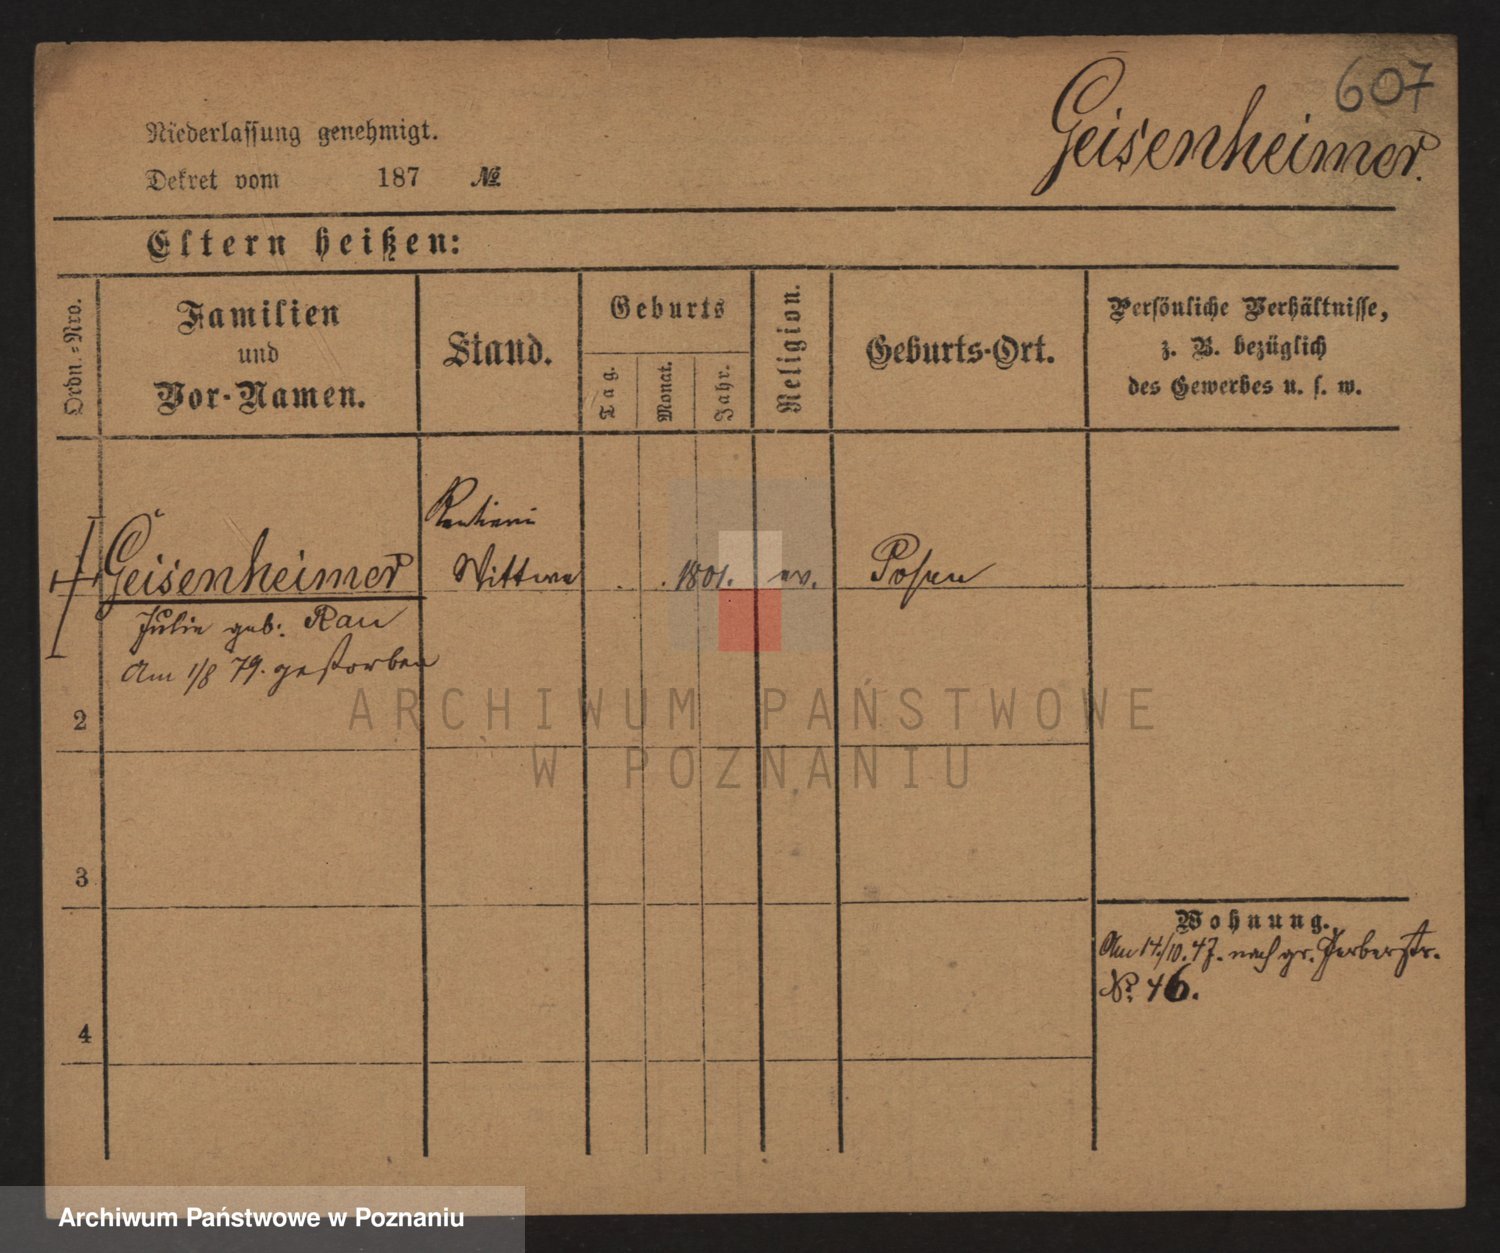 607
Geisenheimer.
Niederlassung genehmigt.
Dekret vom 187 №
Eltern heißen:
Ordn.-Nro.
Familien
und
Vor-Namen.
Stand.
Geburts
Tag.
Monat.
Jahr.
Religion.
Geburts-Ort.
Persönliche Verhältnisse,
z. B. bezüglich
des Gewerbes u. s. w.
Geisenheimer
Julie geb: Rau
Am 1/8 79. gestorben
Rentiere
Wittwe
1801.
ev.
Posen
2
3
4
Wohnung.
Am 14/10. 47. nach gr. Gerberstr.
No. 46.
ARCHIWUM PAŃSTWOWE
W POZNANIU
Archiwum Państwowe w Poznaniu